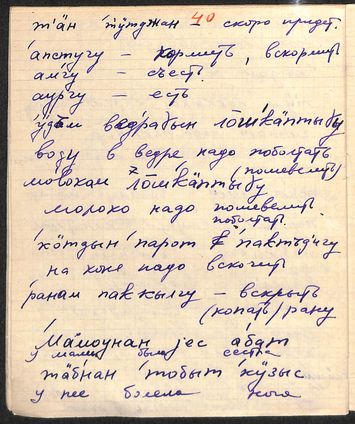 40
т'а̄н 'тӱтджан – скоро придет.
а́пстугу – кормить, вскормить
амгу – съесть
аургу – есть
ӱдъм ведрабын ло̄шкӓптыбу
воду в ведре надо поболтать
мо́локам ло̄шкӓптыбу (пошевелить)
молоко надо пошевелить
поболтать.
'кӧтдын парот 'пактъдигу
на коне надо вскочить
'ранам паккылгу – вскрыть
(копать) рану
'Ма̄моунан jес а́бат
у мамы была сестра
тӓбнан 'тобыт 'кӱзыс
у нее болела нога